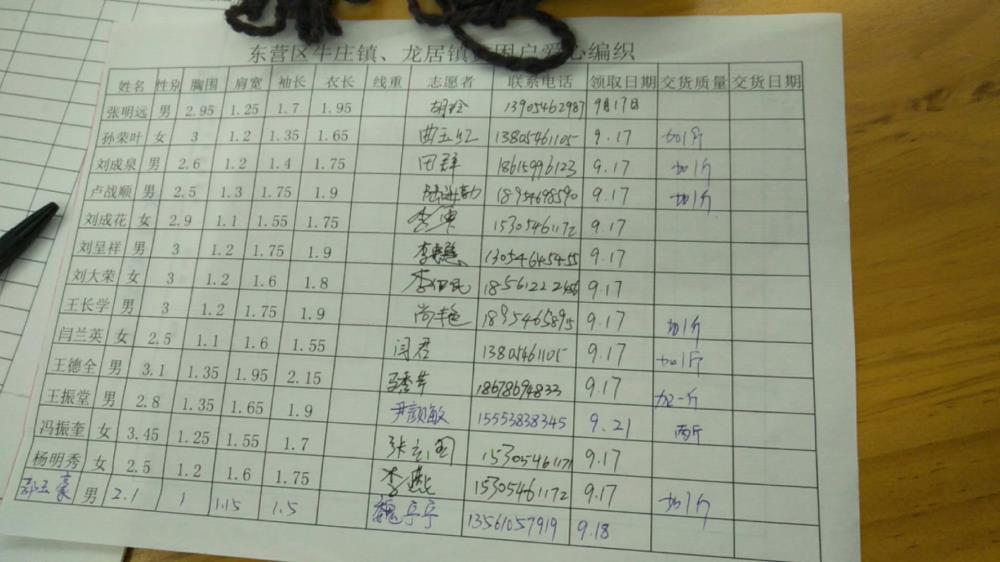 东营区牛庄镇、龙居镇困户爱心编织
姓名 性别 胸围 肩宽 袖长 衣长 线重 志愿者 联系电话 领取日期 交货质量 交货日期
张明远 男 2.95 1.25 1.7 1.95 胡玲 13905462987 9月17日
孙荣叶 女 3 1.2 1.35 1.65 曲玉红 13805461105 9.17 加1斤
刘成泉 男 2.6 1.2 1.4 1.75 田群 18615996123 9.17 加1斤
卢战顺 男 2.5 1.3 1.75 1.9 18954698590 9.17 加1斤
刘成花 女 2.9 1.1 1.55 1.75 15305461172 9.17
刘呈祥 男 3 1.2 1.75 1.9 13054645455 9.17
刘大荣 女 3 1.2 1.6 1.8 9.17
王长学 男 3 1.2 1.75 1.9 尚艳 1895465895 9.17 加1斤
闫兰英 女 2.5 1.1 1.6 1.55 闫君 13805461105 9.17 加1斤
王德全 男 3.1 1.35 1.95 2.15 18678694833 9.17 加一斤
王振堂 男 2.8 1.35 1.65 1.9 尹颜敏 15553838345 9.21 两斤
冯振奎 女 3.45 1.25 1.55 1.7 9.17
杨明秀 女 2.5 1.2 1.6 1.75 李燕 15305461172 9.17 加1斤
孙玉豪 男 2.1 1 1.15 1.5 魏亭亭 13561057919 9.18